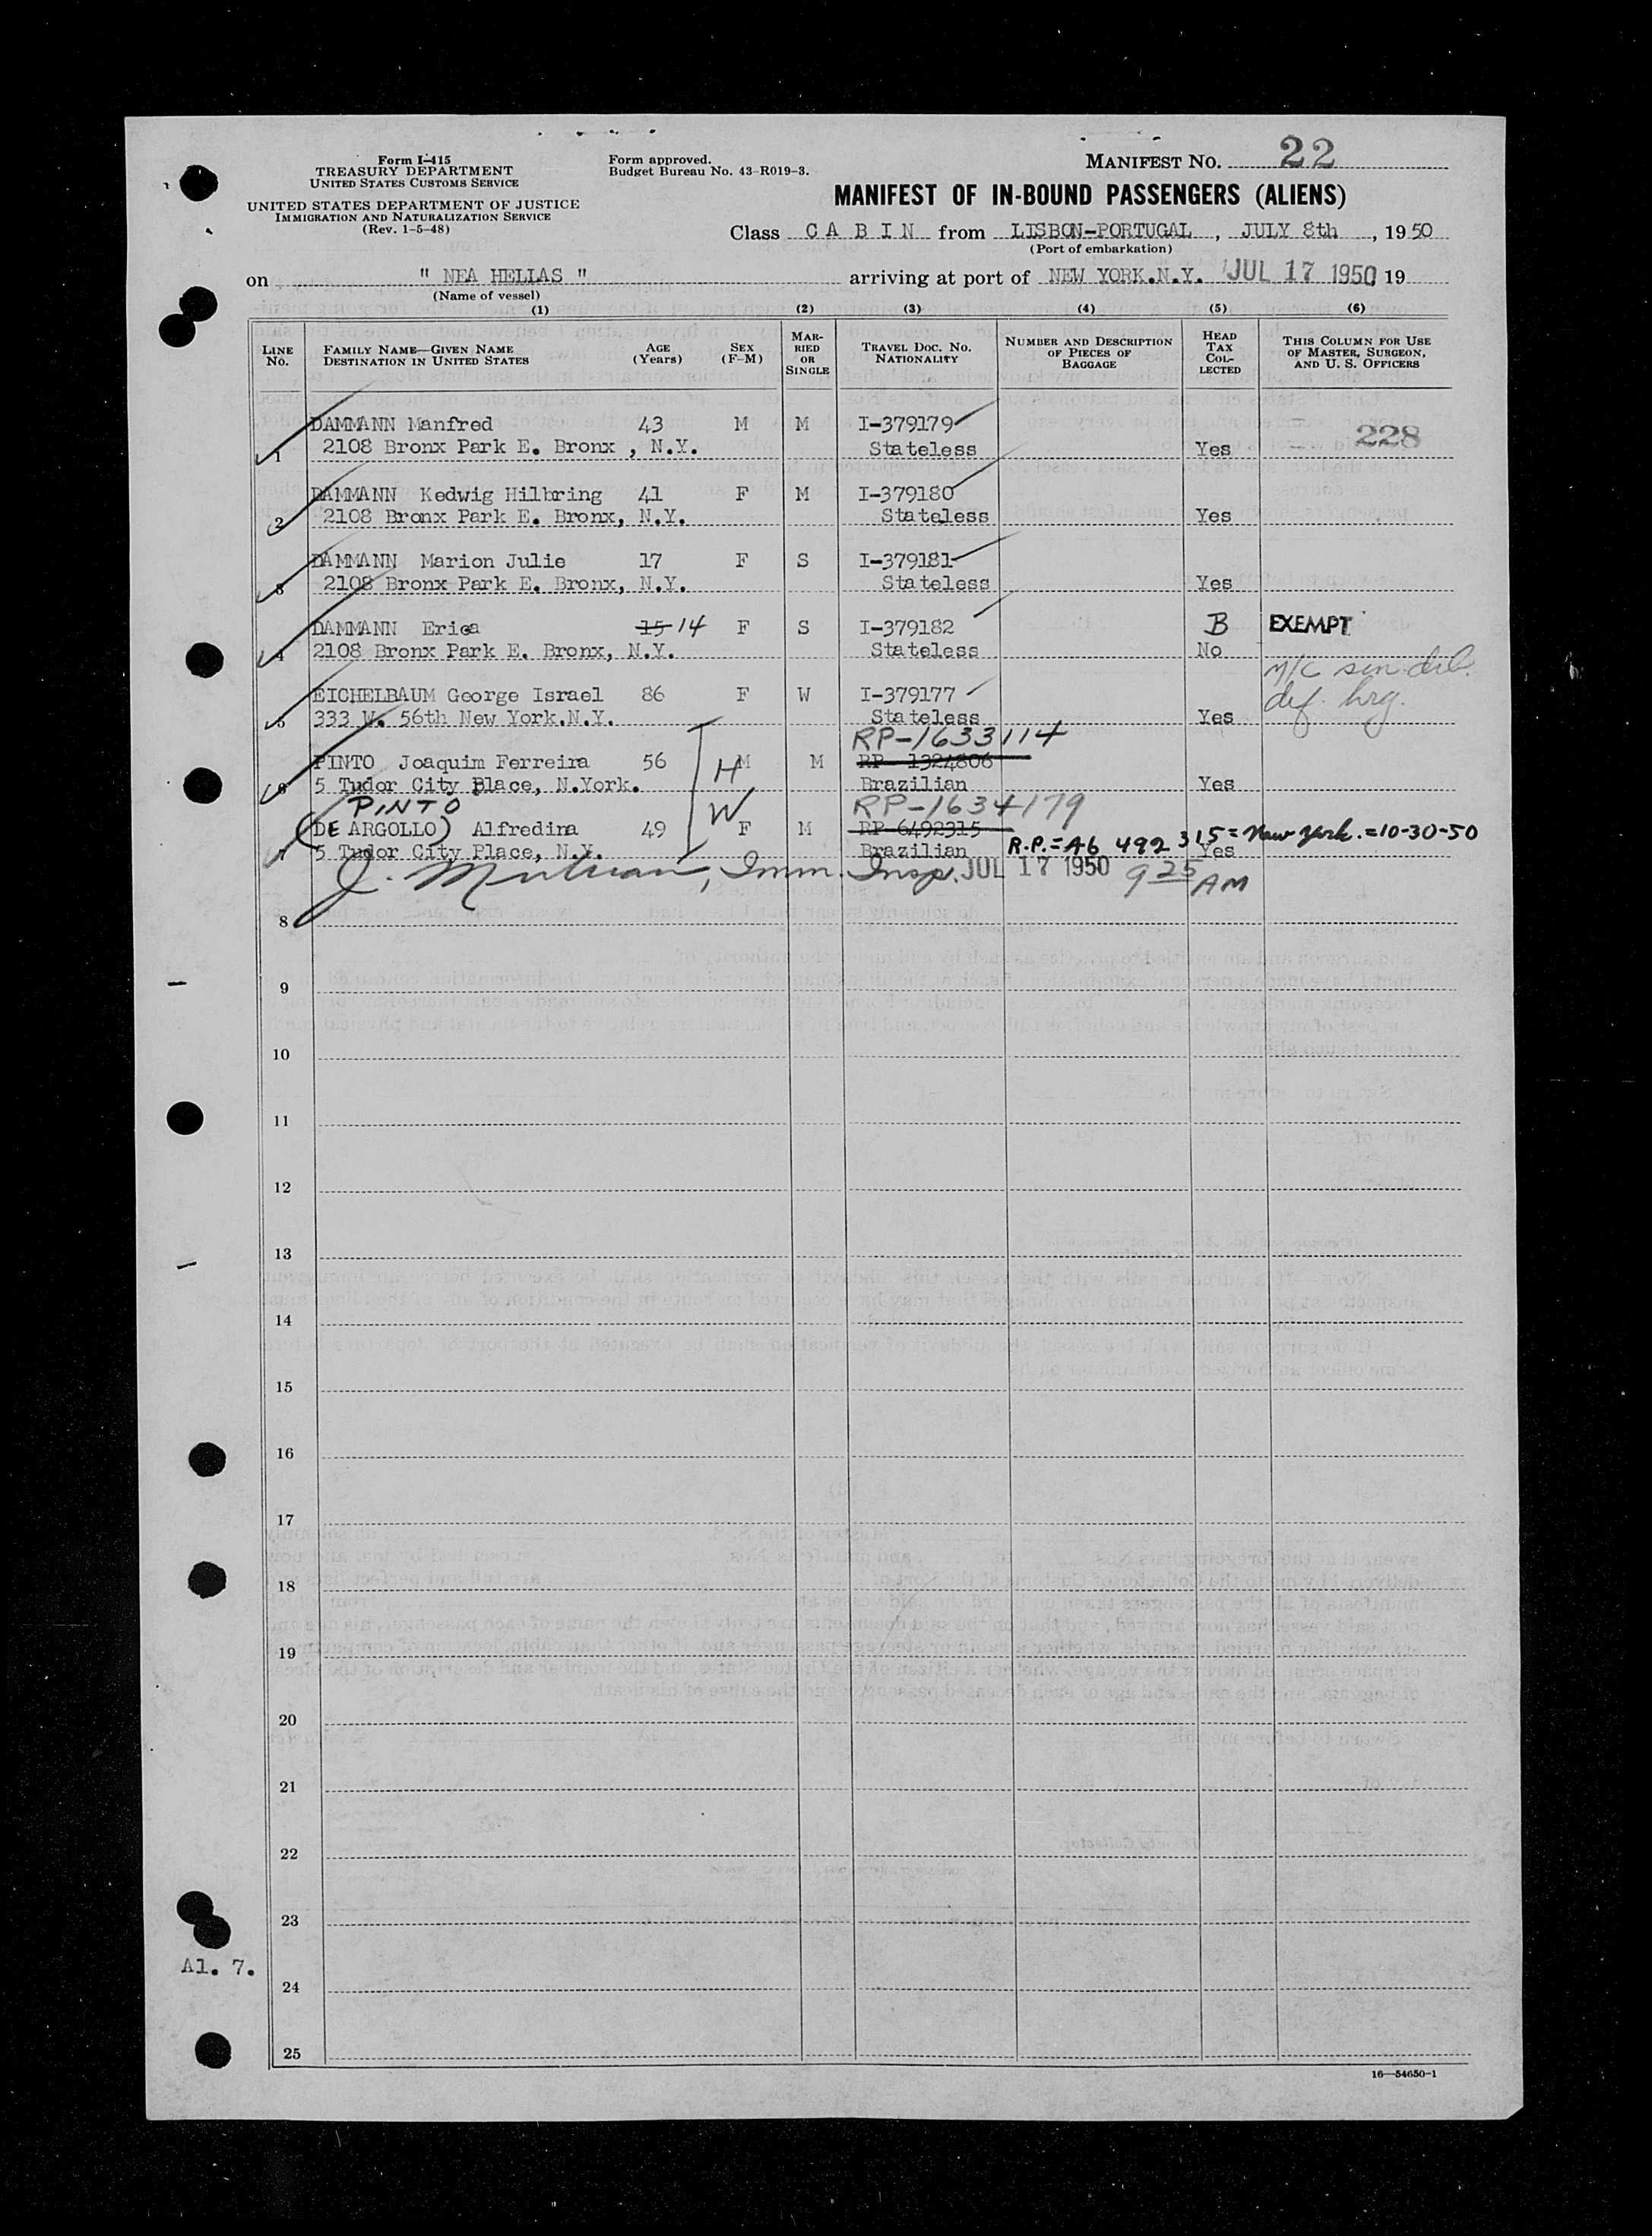 Form I-415
TREASURY DEPARTMENT
UNITED STATES CUSTOMS SERVICE
UNITED STATES DEPARTMENT OF JUSTICE
IMMIGRATION AND NATURALIZATION SERVICE
(Rev. 1-5-48)
Form approved.
Budget Bureau No. 43-R019-3.
MANIFEST NO. 22
MANIFEST OF IN-BOUND PASSENGERS (ALIENS)
Class C A B I N from LISBON-PORTUGAL, JULY 8th, 1950
(Port of embarkation)
on " NEA HELLAS " arriving at port of NEW YORK.N.Y. JUL 17 1950 19
(Name of vessel)
(1) (2) (3) (4) (5) (6)
LINE NO. FAMILY NAME—GIVEN NAME DESTINATION IN UNITED STATES AGE (Years) SEX (F-M) MARRIED OR SINGLE TRAVEL DOC. NO. NATIONALITY NUMBER AND DESCRIPTION OF PIECES OF BAGGAGE HEAD TAX COLLECTED THIS COLUMN FOR USE OF MASTER, SURGEON, AND U. S. OFFICERS
DAMMANN Manfred 43 M M I-379179 228
1 2108 Bronx Park E. Bronx , N.Y. Stateless Yes
DAMMANN Kedwig Hilbring 41 F M I-379180
2 2108 Bronx Park E. Bronx, N.Y. Stateless Yes
DAMMANN Marion Julie 17 F S I-379181
3 2108 Bronx Park E. Bronx, N.Y. Stateless Yes
DAMMANN Erica 15 14 F S I-379182 B EXEMPT
4 2108 Bronx Park E. Bronx, N.Y. Stateless No
EICHELBAUM George Israel 86 F W I-379177 M/C sen. deb.
5 333 W. 56th New York.N.Y. Stateless Yes def. hrg.
RP-1633114
PINTO Joaquim Ferreira 56 H M M RP- 1324806
6 5 Tudor City Place, N.York. Brazilian Yes
PINTO RP-1634179
(DE ARGOLLO) Alfredina 49 W F M RP-6492315
7 5 Tudor City Place, N.Y. Brazilian R.P.=A6 492 315=New York.=10-30-50 Yes
J. , Imm. Insp. JUL 17 1950 9 25 AM
8
9
10
11
12
13
14
15
16
17
18
19
20
21
22
23
Al. 7.
24
25
16—54650-1